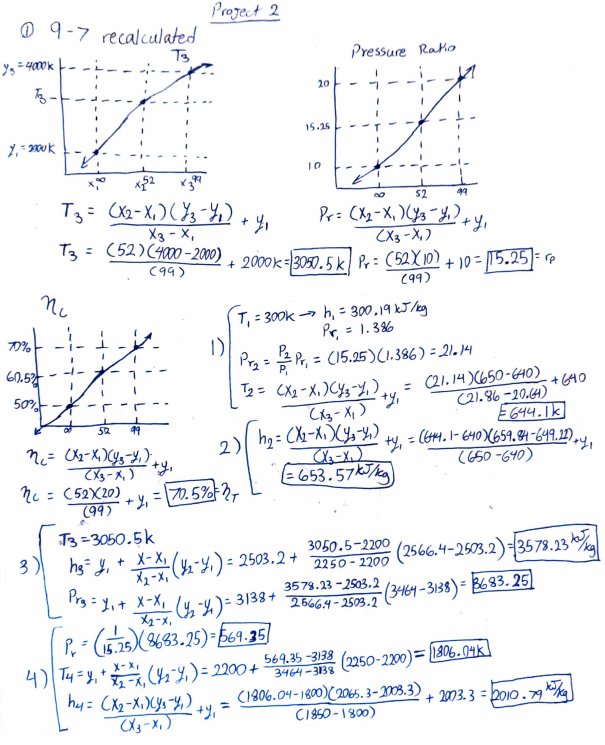 Project 2
① 9-7 recalculated
T3
y3 = 4000k
T3
y1 = 2000k
x1 00
x2 52
x3 99
Pressure Ratio
20
15.25
10
00
52
99
T3 = (x2-x1)(y3-y1) / (x3-x1) + y1
Pr = (x2-x1)(y3-y1) / (x3-x1) + y1
T3 = (52)(4000-2000) / (99) + 2000k = 3050.5 k
Pr = (52)(10) / (99) + 10 = 15.25 = rp
ηc
70%
60.5%
50%
00
52
99
ηc = (x2-x1)(y3-y1) / (x3-x1) + y1
ηc = (52)(20) / (99) + y1 = 70.5% = ηT
1) T1 = 300k → h1 = 300.19 kJ/kg
Pr1 = 1.386
Pr2 = P2/P1 Pr1 = (15.25)(1.386) = 21.14
T2 = (x2-x1)(y3-y1) / (x3-x1) + y1 = (21.14)(650-640) / (21.86-20.64) + 640
= 644.1k
2) h2 = (x2-x1)(y3-y1) / (x3-x1) + y1 = (644.1-640)(659.84-649.22) / (650-640) + y1
= 653.57 kJ/kg
3) T3 = 3050.5k
h3 = y1 + x-x1 / x2-x1 (y2-y1) = 2503.2 + 3050.5-2200 / 2250-2200 (2566.4-2503.2) = 3578.23 kJ/kg
Pr3 = y1 + x-x1 / x2-x1 (y2-y1) = 3138 + 3578.23-2503.2 / 2566.4-2503.2 (3464-3138) = 8683.25
4) Pr = (1/15.25)(8683.25) = 569.35
T4 = y1 + x-x1 / x2-x1 (y2-y1) = 2200 + 569.35-3138 / 3464-3138 (2250-2200) = 1806.04k
h4 = (x2-x1)(y3-y1) / (x3-x1) + y1 = (1806.04-1800)(2065.3-2003.3) / (1850-1800) + 2003.3 = 2010.79 kJ/kg